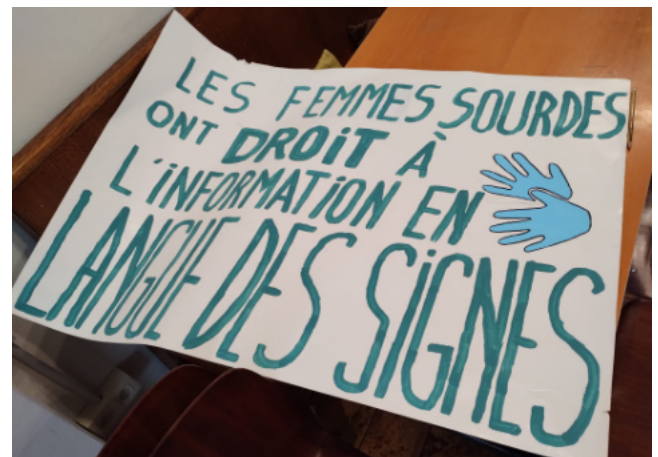 LES FEMMES SOURDES
ONT DROiT À
L'iNFORMATiON EN
LANGUE DES SiGNES